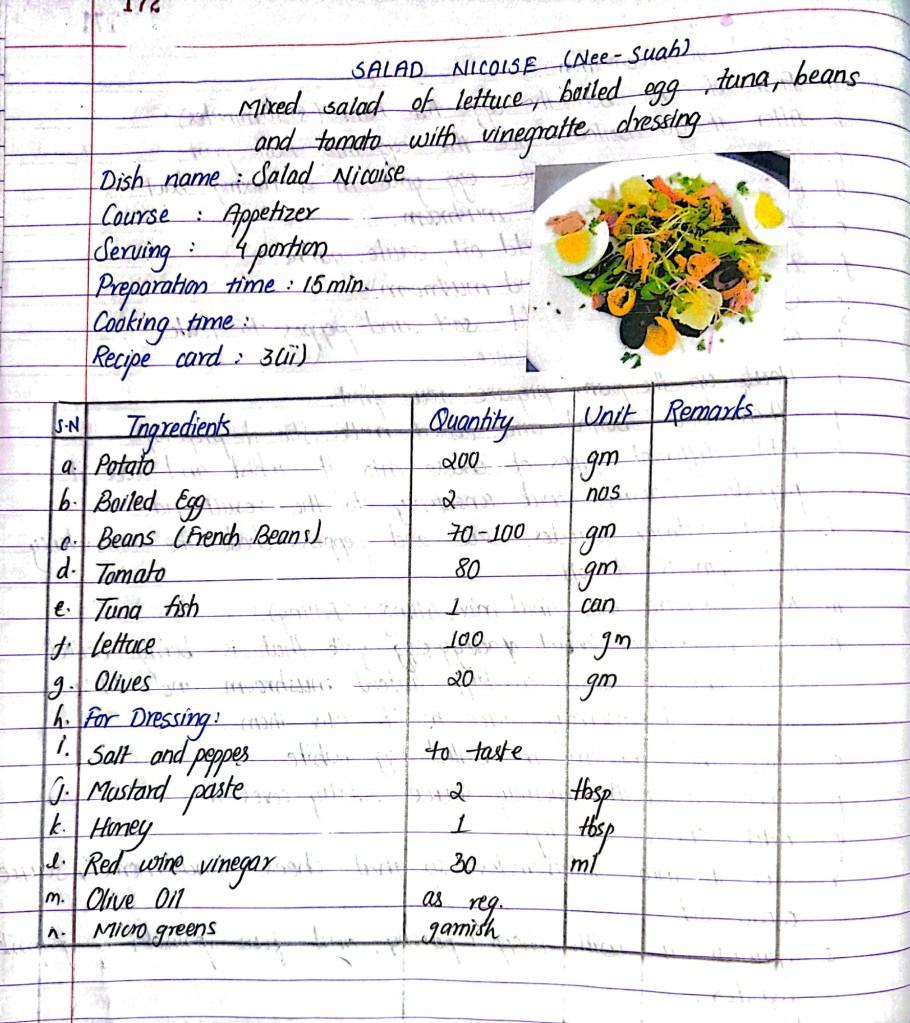 172
SALAD NICOISE (Nee-Suah)
Mixed salad of lettuce, boiled egg, tuna, beans
and tomato with vinegratte dressing
Dish name : Salad Nicoise
Course : Appetizer
Serving : 4 portion
Preparation time : 15 min.
Cooking time :
Recipe card : 3(ii)
S.N Ingredients Quantity Unit Remarks
a. Potato 200 gm
b. Boiled Egg 2 nos
c. Beans (French Beans) 70-100 gm
d. Tomato 80 gm
e. Tuna fish 1 can
f. Lettuce 100 gm
g. Olives 20 gm
h. For Dressing:
i. Salt and pepper to taste
j. Mustard paste 2 tbsp
k. Honey 1 tbsp
l. Red wine vinegar 30 ml
m. Olive Oil as req.
n. Micro greens garnish